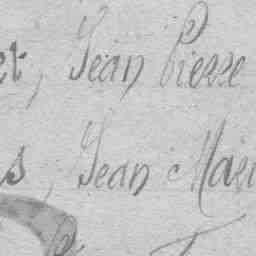 et, Jean Pierre
s, Jean Mari